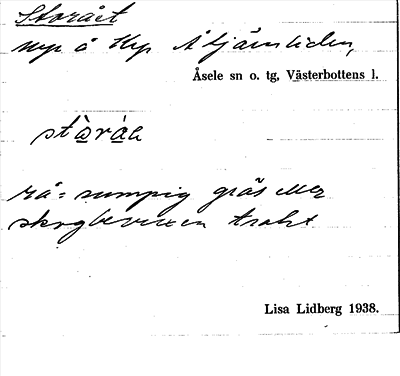 Storået
myr å Krp Åtjärnliden,
Åsele sn o. tg, Västerbottens l.
stàràe
rå = sumpig gräs eller
skogbevuxen trakt
Lisa Lidberg 1938.